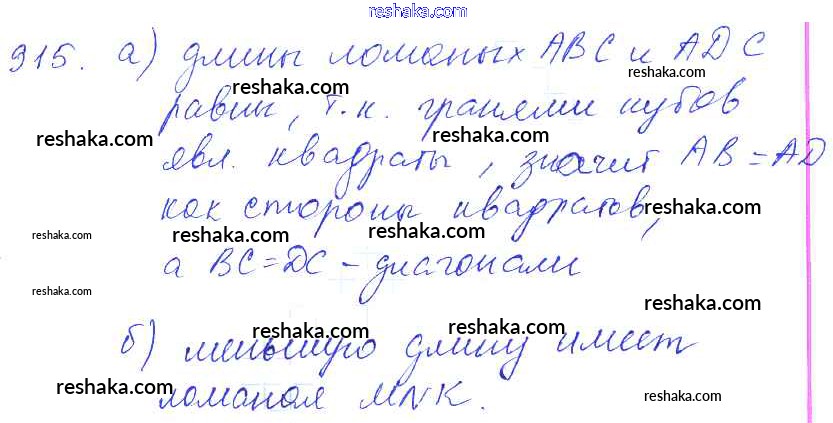 reshaka.com
915. а) длины ломаных ABC и ADC
reshaka.com reshaka.com
равны, т.к. гранями кубов
reshaka.com reshaka.com reshaka.com
явл. квадраты, значит AB = AD
reshaka.com reshaka.com reshaka.com
как стороны квадратов,
reshaka.com reshaka.com reshaka.com
а BC = DC - диагонали
reshaka.com reshaka.com
reshaka.com reshaka.com reshaka.com
б) меньшую длину имеет
reshaka.com reshaka.com
ломаная MNK.
reshaka.com